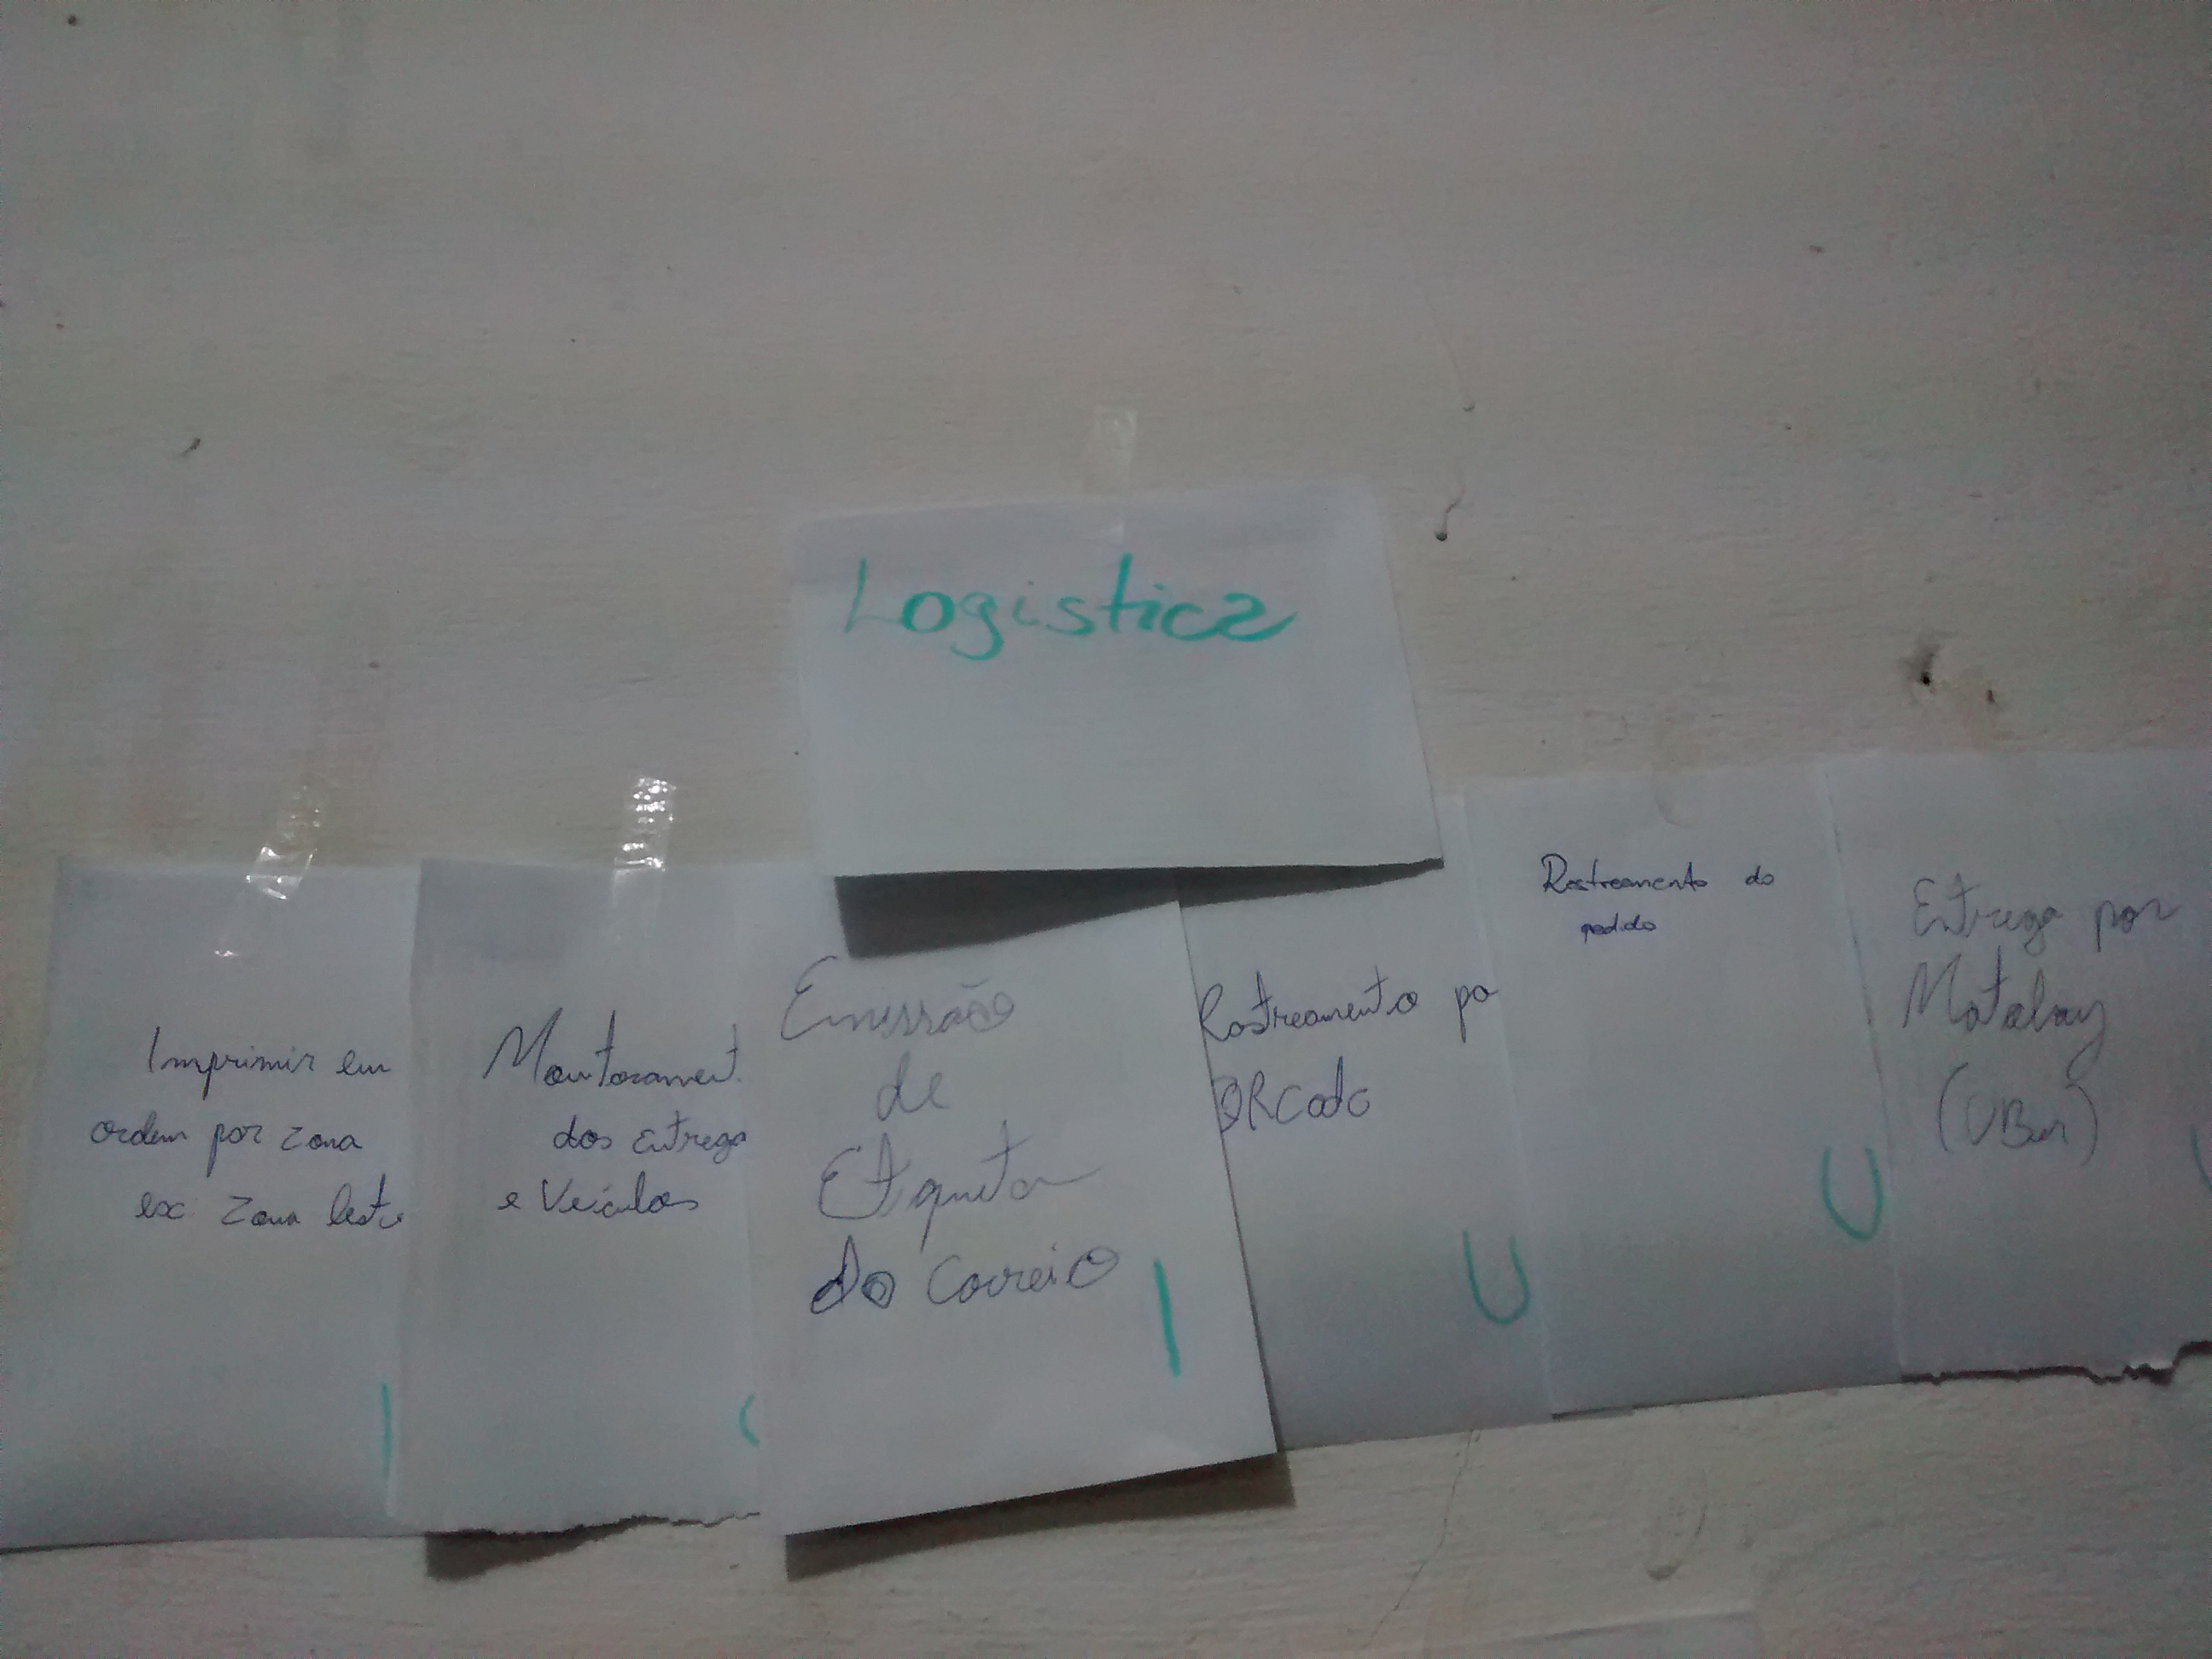 Logistica
Imprimir em
ordem por zona
ex: Zona leste
Monitorament
dos Entrega
e Veículos
Emissão
de
Etiqueta
do Correio
I
Rastreamento po
QRCode
U
Rastreamento do
pedido
U
Entrega por
Motoboy
(UBer)